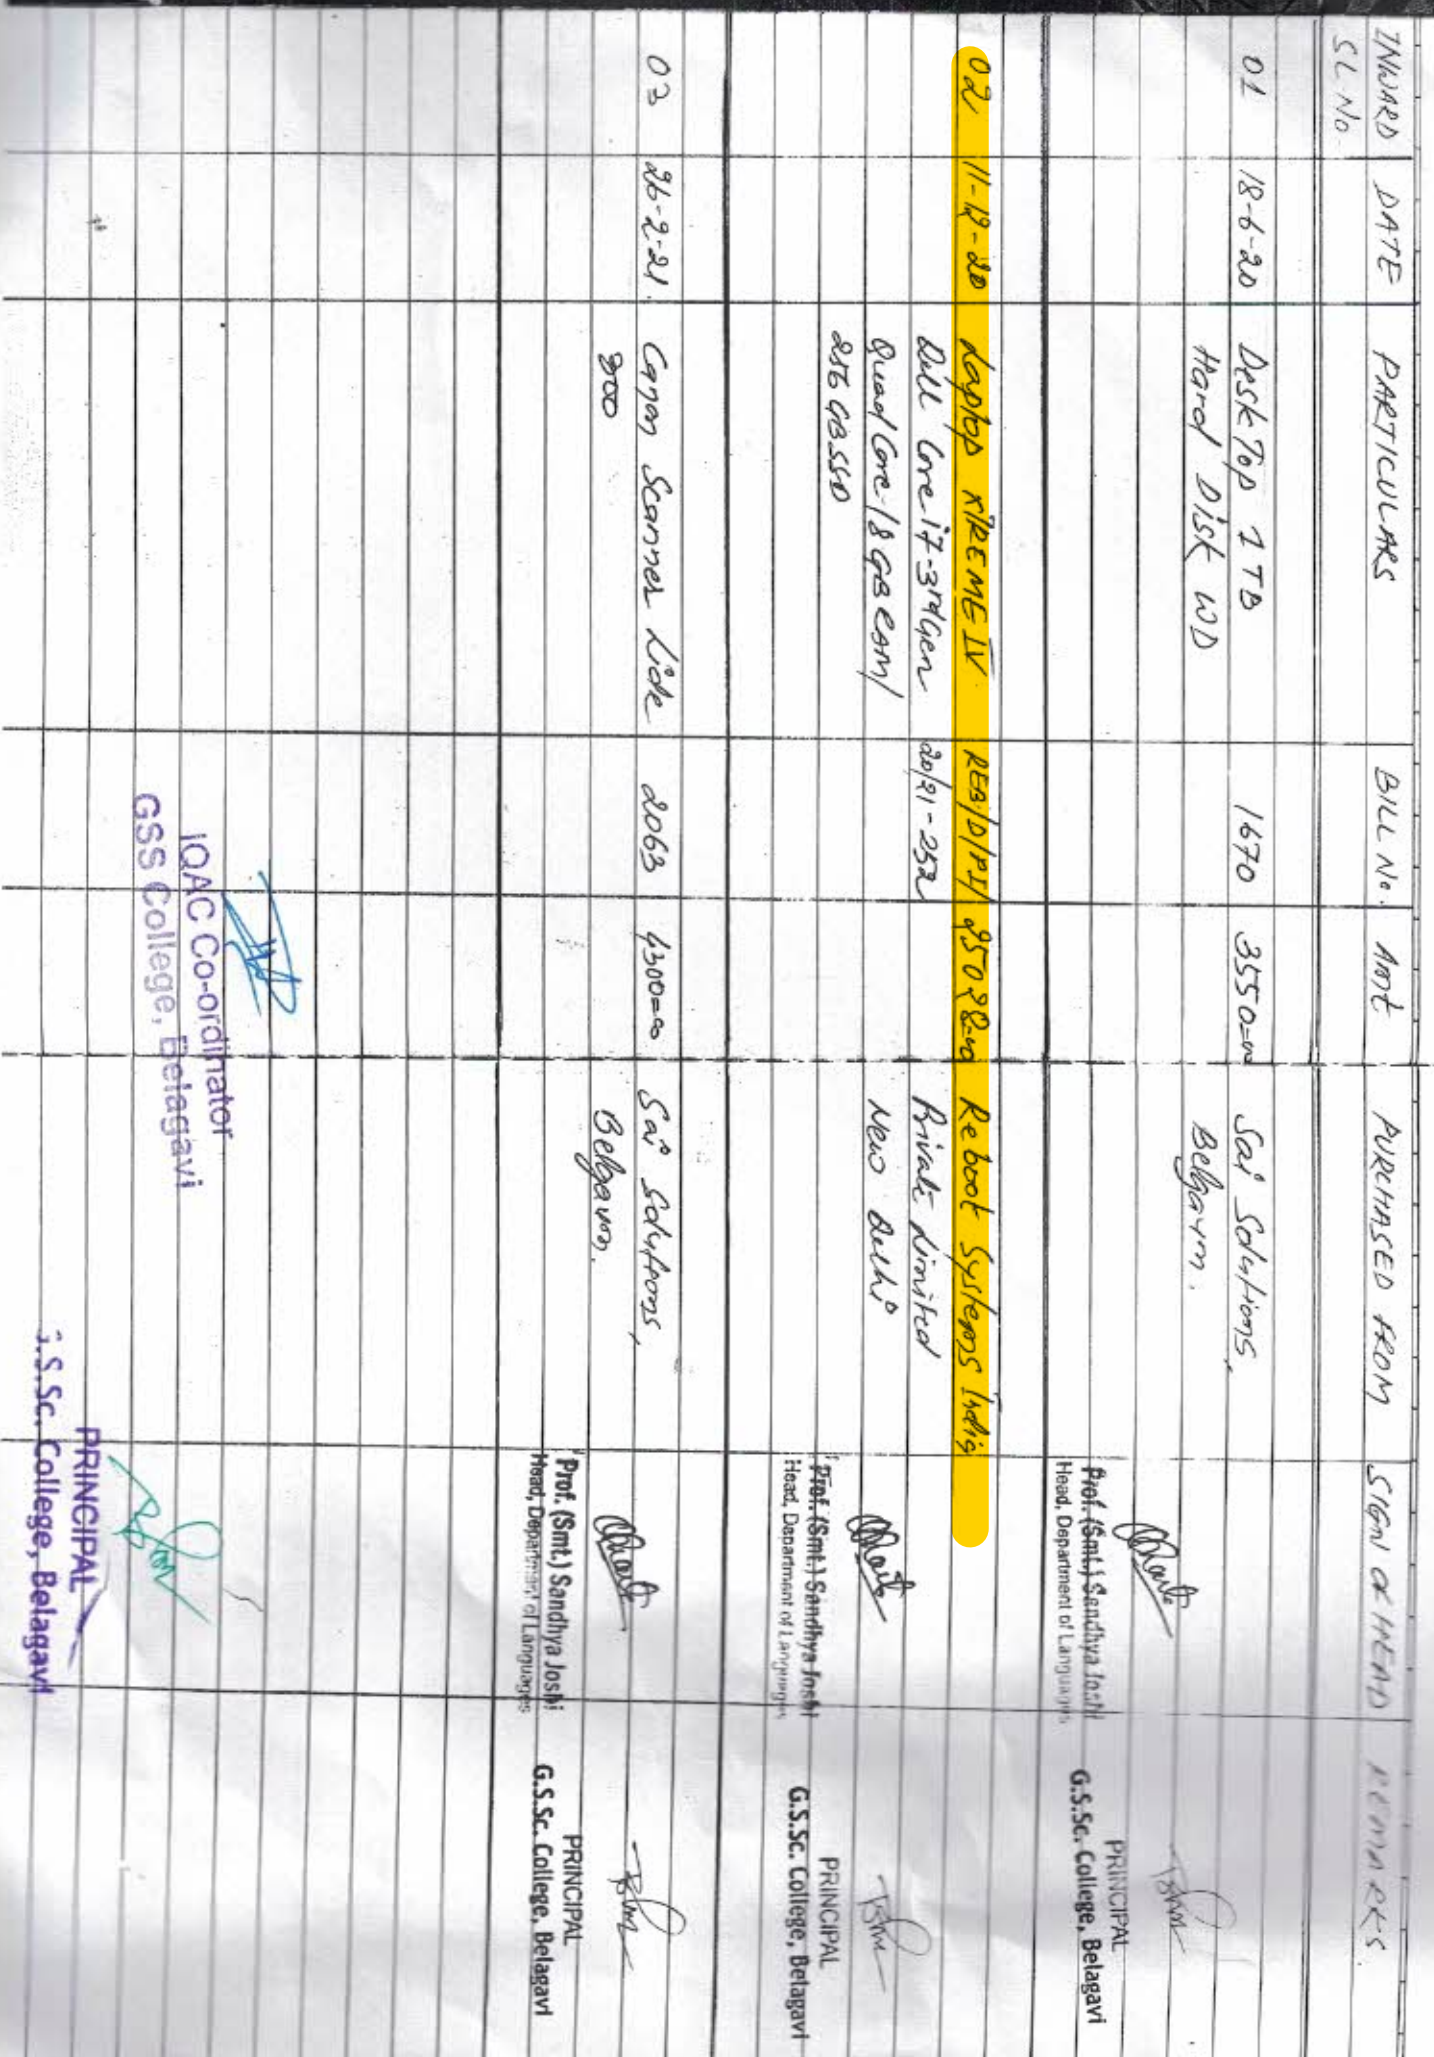 INWARD SL No. DATE PARTICULARS BILL No. Amt PURCHASED FROM SIGN OF HEAD REMARKS
01 18-6-20 Desk Top 1 TB 1670 3550=00 Sai Solutions,
Hard Disk WD Belgaum.
Prof. (Smt.) Sandhya Joshi
Head, Department of Languages
PRINCIPAL
G.S.Sc. College, Belagavi
02 11-12-20 Laptop XTREME IV REB/D/PI/ 25028=00 Reboot Systems India
Dell Core i7-3rd Gen 20/21-252 Private Limited
Quad Core-/8 GB RAM/ New Delhi
256 GB SSD
Prof. (Smt.) Sandhya Joshi
Head, Department of Languages
PRINCIPAL
G.S.Sc. College, Belagavi
03 26-2-21. Canon Scanner Lide 2063 4300=00 Sai Solutions,
300 Belgaum.
Prof. (Smt.) Sandhya Joshi
Head, Department of Languages
PRINCIPAL
G.S.Sc. College, Belagavi
IQAC Co-ordinator
GSS College, Belagavi
PRINCIPAL
G.S.Sc. College, Belagavi